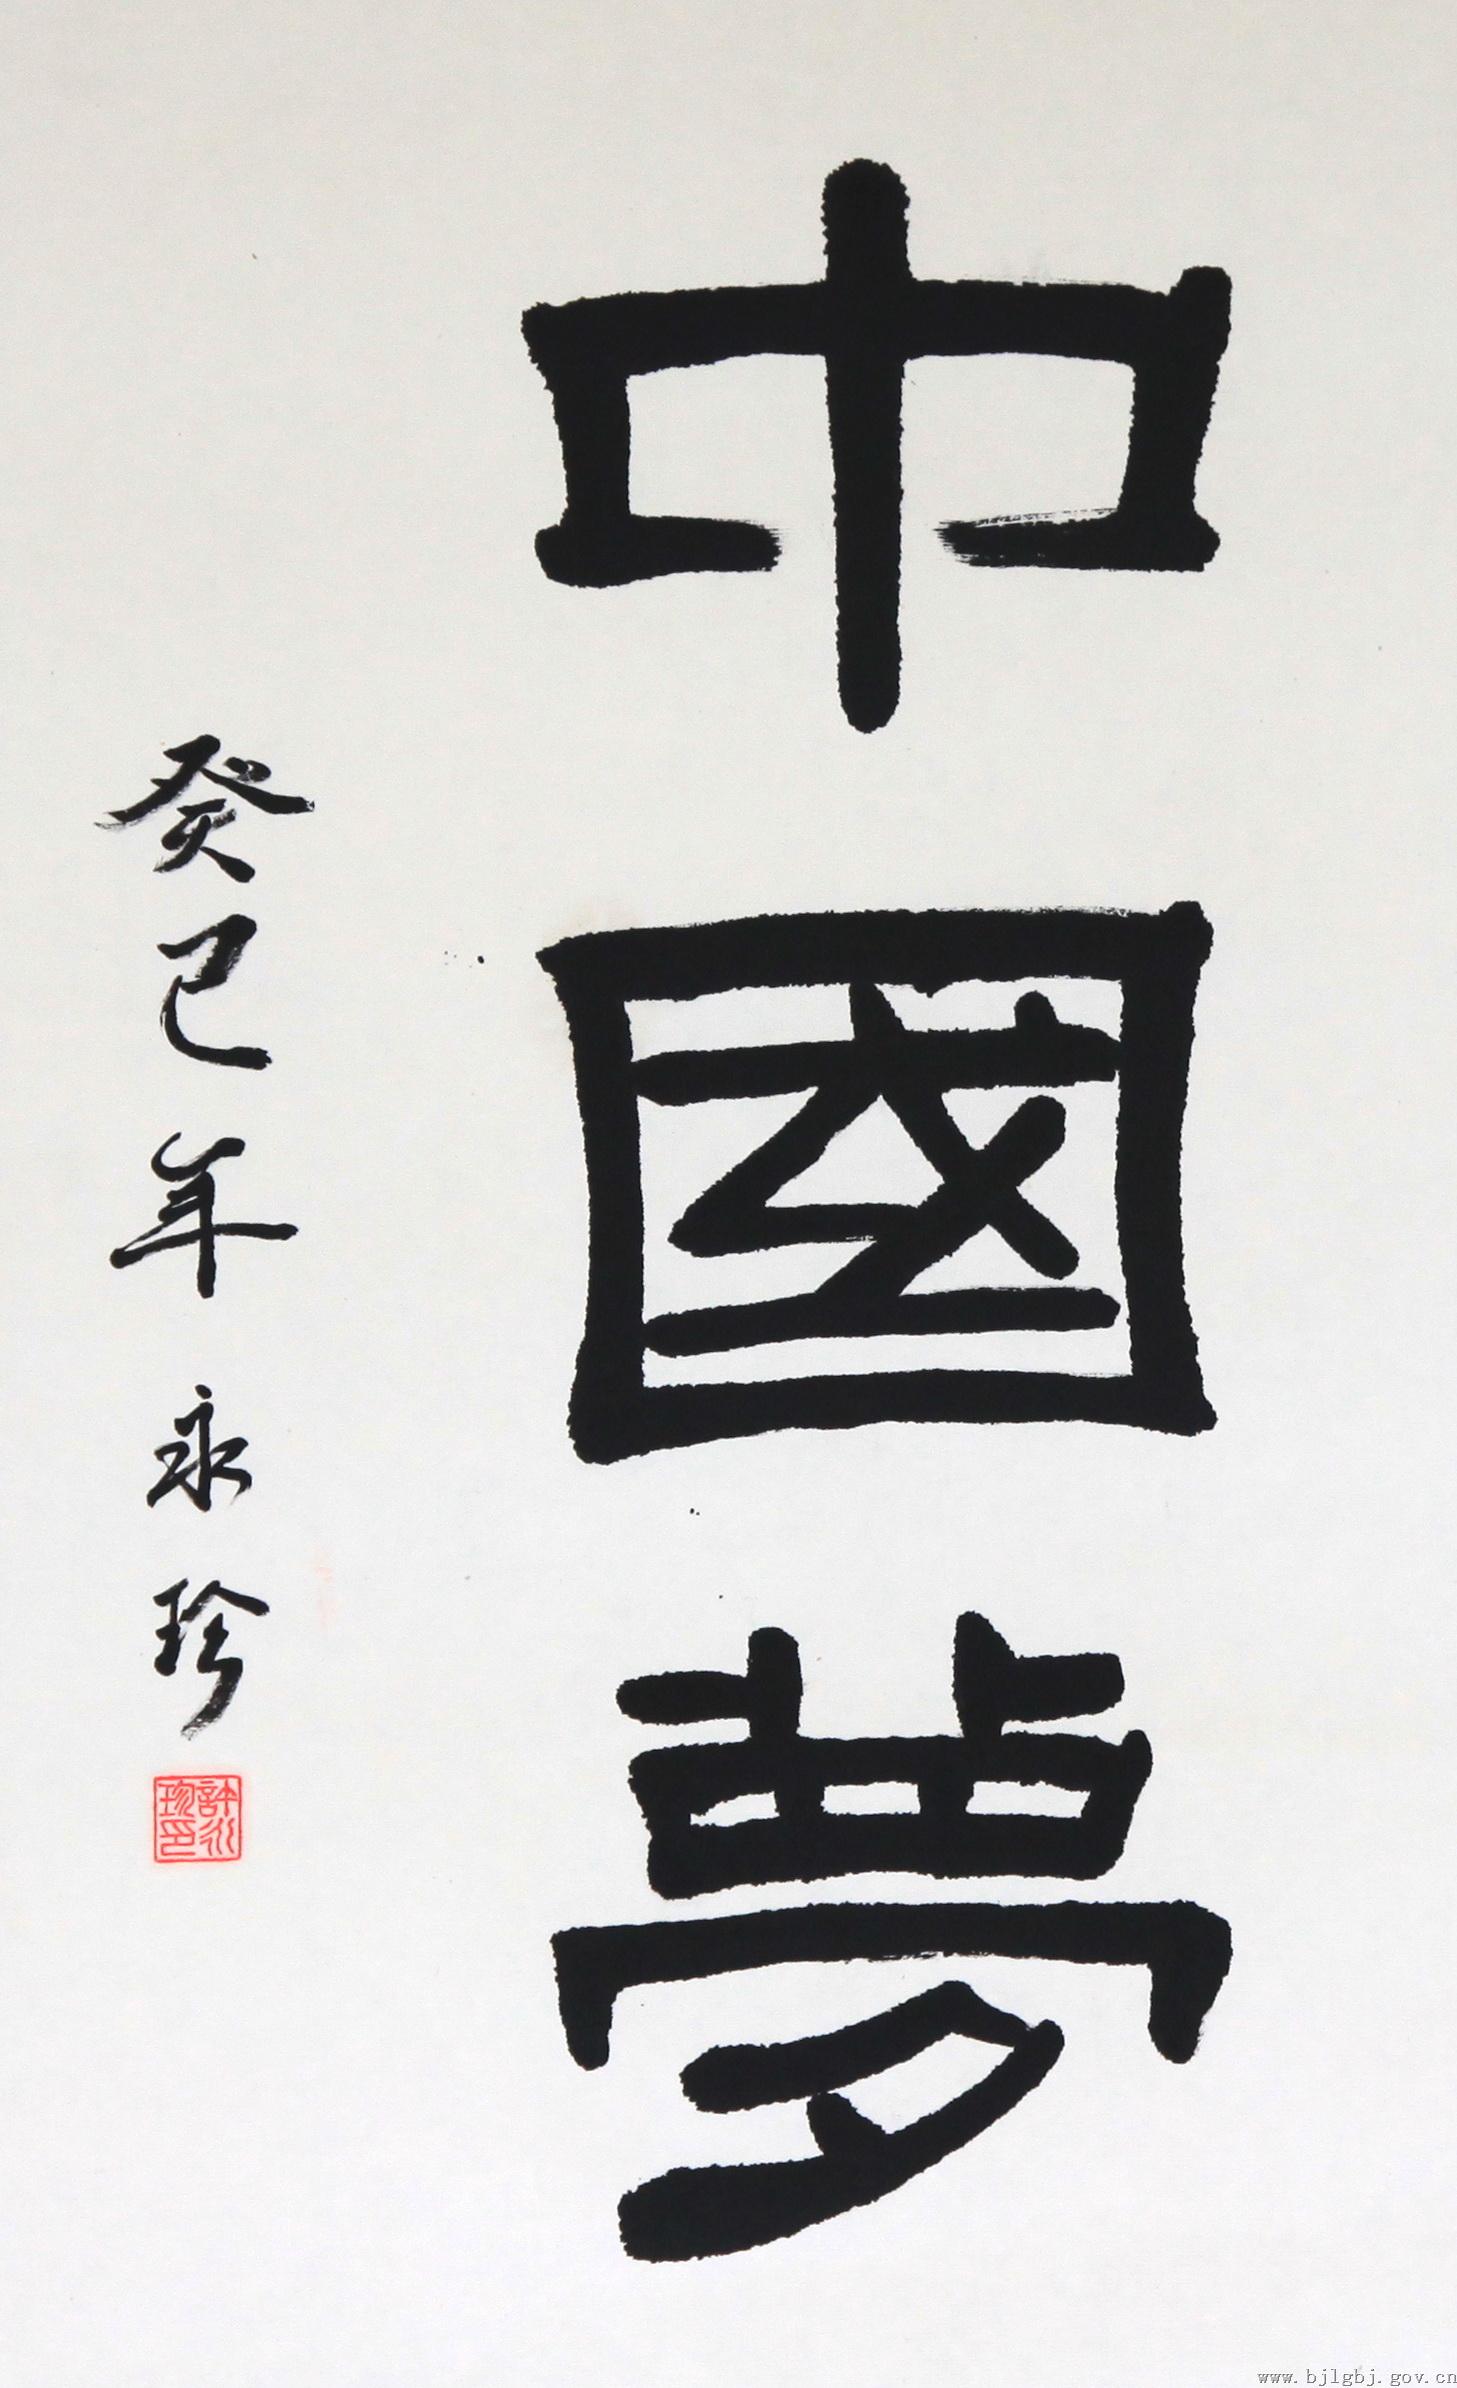 中國夢
癸巳年 永珍
許永珍印
www.bjlgbj.gov.cn